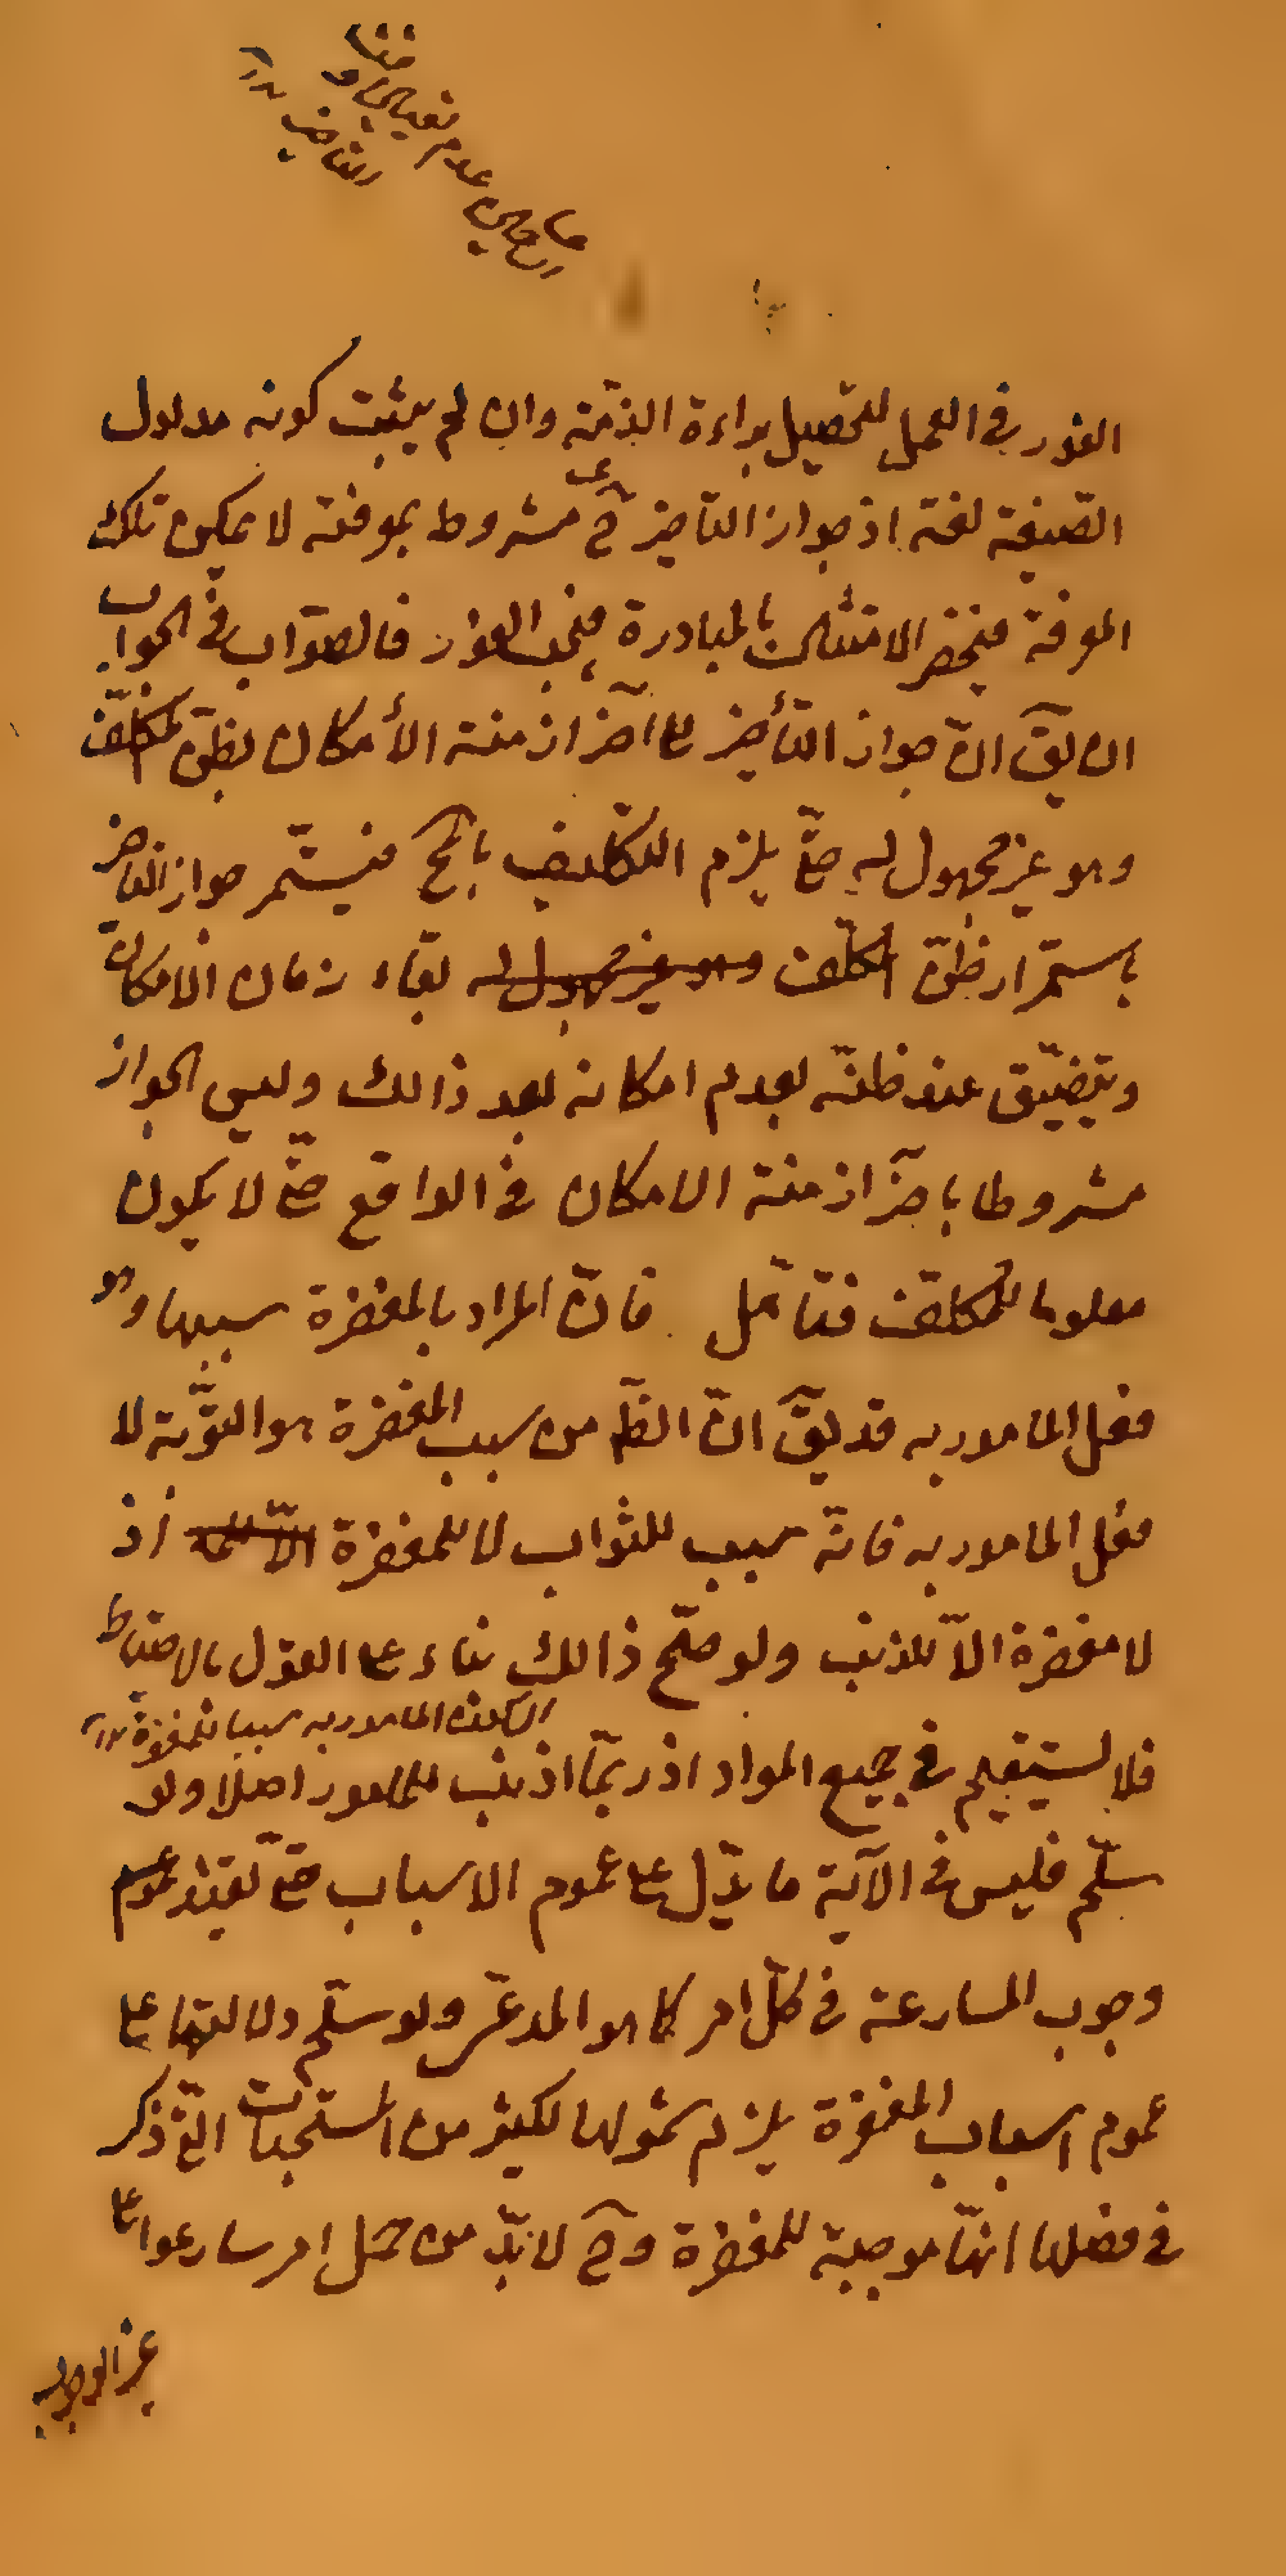 الفور في العمل لتحصيل براءة الذمّة وان لم يثبت كونه مدلول
الصّيغة لغة اذ جواز التاخير ح مشروط بموفته لا يمكن تلك
المعرفة فينحصر الامتثال بالمبادرة فيجب الفور فالصّواب في الجواب
ان يقٓ انّ جواز التأخير الى اخر ازمنة الأمكان بظنّ المكلّف
وهو غير مجهول له حتّى يلزم التكليف بالمح فيستمّر جواز التاخير
باستمرار ظنّ المكلّف وهو غير مجهول له بقاء زمان الامكان
ويتضيّق عند ظنّه بعدم امكانه بعد ذالك وليس الجواز
مشروطا باخر ازمنة الامكان في الواقع حتّى لا يكون
معلوما للمكلّف فتامّل فانّ المراد بالمغفرة سببها وهو
فعل المامور به قد يقٓ انّ الظٓ من سبب المغفرة هو التوبة لا
فعل المامور به فانّه سبب للثواب لا للمغفرة اذ
لا مغفرة الّا للذنب ولو صحّ ذالك بناء على القول بالاحباط
المامور به سببا للمغفرة
فلا يستقيم في جميع المواد اذ ربّما لا ذنب للمامور اصلا ولو
سلّم فليس في الآية ما يدّل على عموم الاسباب حتّى تفيد عموم
وجوب المسارعة في كلّ امر كما هو المدعى ولو سلّم دلالتها على
عموم اسباب المغفرة يلزم شمولها لكثير من المستحبات التي ذكر
في فضلها انّها موجبة للمغفرة وح لا بدّ من حمل امر سارعوا على
غير الوجوب